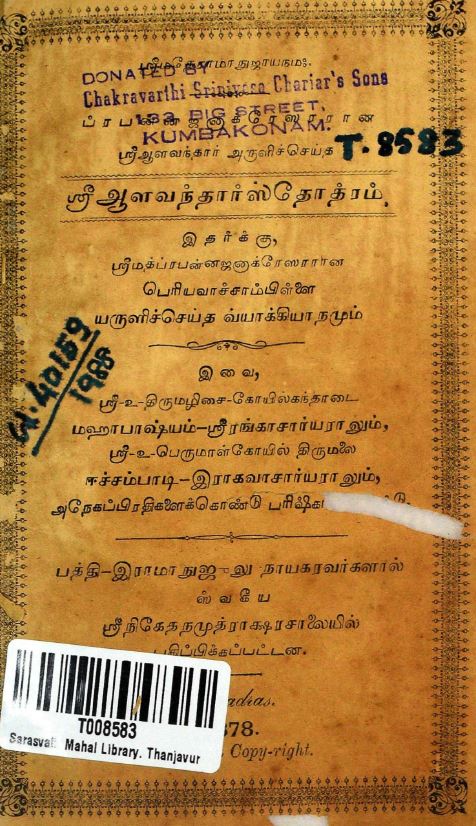 ஸ்ரீமதேராமாநுஜாயநம:
DONATED BY
Chakravarthi Srinivasa Chariar's Sons
133 BIG STREET,
KUMBAKONAM.
ப்ரபன்னஜனாக்ரேஸரரான
ஸ்ரீஆளவந்தார் அருளிச்செய்த
T. 8583
ஸ்ரீஆளவந்தார்ஸ்தோத்ரம்.
இதர்க்கு,
ஸ்ரீமத்ப்ரபன்னஜனாக்ரேஸரரான
பெரியவாச்சாம்பிள்ளை
யருளிச்செய்த வ்யாக்கியாநமும்
இவை,
ஸ்ரீ-உ-திருமழிசை-கோயில்கந்தாடை
மஹாபாஷ்யம்-ஸ்ரீரங்காசார்யராலும்,
ஸ்ரீ-உ-பெருமாள்கோயில் திருமலை
ஈச்சம்பாடி-இராகவாசார்யராலும்,
அநேகப்ரதிகளைக்கொண்டு
40159
1985
பத்தி-இராமாநுஜலு நாயகரவர்களால்
ஸ்வகீய
ஸ்ரீநிகேதநமுத்ராக்ஷரசாலையில்
பதிப்பிக்கப்பட்டன.
T008583
Sarasvati Mahal Library, Thanjavur
Copy-right.